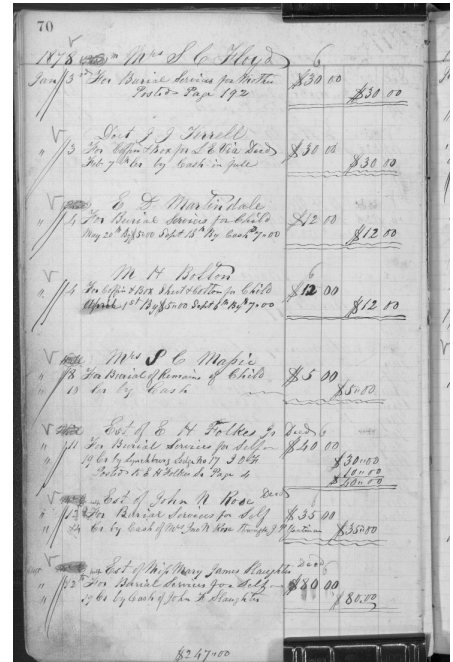 70
1878 Mrs S. C. Floyd 6
Jan 3 For Burial Services for Mother $30 00
Posted Page 192 $30 00
J. J. Terrell
" 3 For Coffin & Box for Decd $30 00
Feb 7th Cr by Cash in full $30 00
E. D. Martindale
" 4 For Burial Services for Child $12 00
May 20th By $5.00 Sept 18th By Cash $7.00 $12 00
M. H. Boston 6
" 4 For Coffin & Box Sheet & Cotton for Child $12 00
April 1st By $5.00 Sept By $7.00 $12 00
Mrs S. C.
" 8 For Burial of Remains of Child $5 00
" 10 Cr by Cash $5.00
Est of E. H. Folkes Jr Decd 6
" 11 For Burial Services for Self $40 00
19 Cr by Lynchburg Lodge No 17 I.O.F. $30.00
Posted to E H Folkes Page 4 10.00
$40.00
Est of John N. Rose Decd
" 12 For Burial Services for Self $35 00
Cr by Cash of Mrs Jno N. Rose through $35.00
Est of Miss Mary James Slaughter Decd
" 12th For Burial Services for Self $80 00
" 19 Cr by Cash of John Slaughter $80.00
$247.00